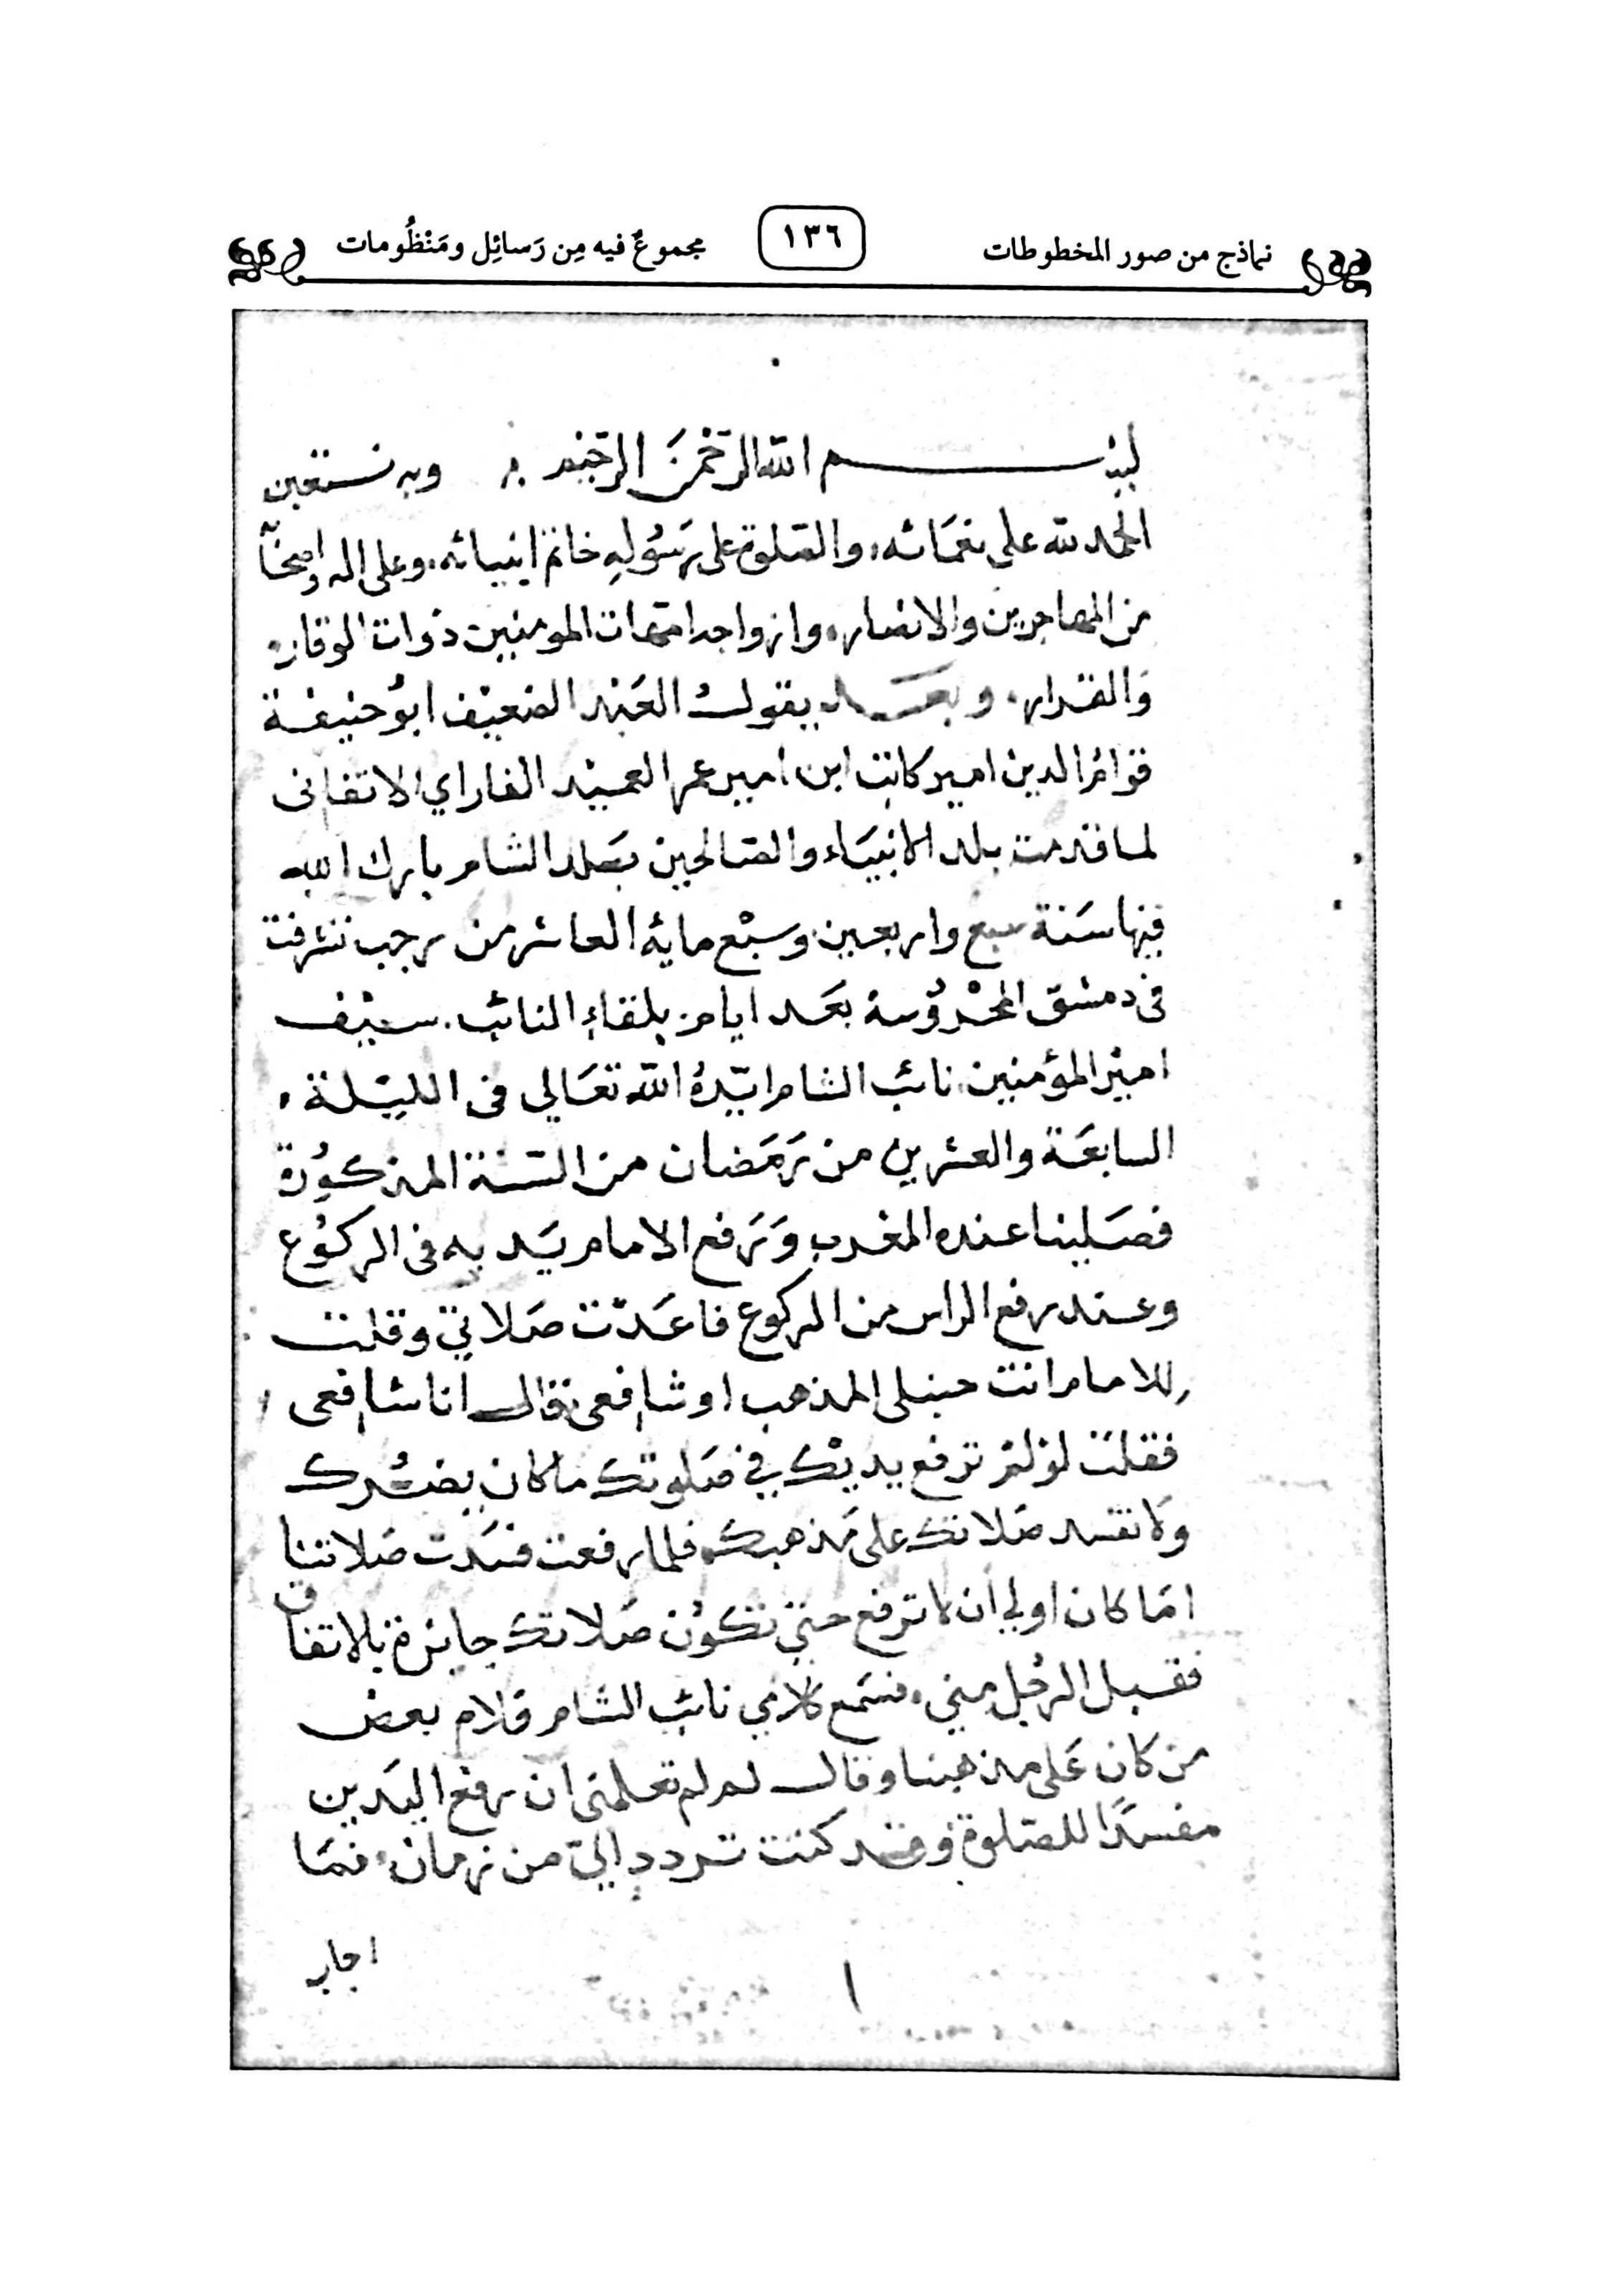 نماذج من صور المخطوطات ١٣٦ مجموعٌ فيه مِن رَسائِل ومَنْظُومات
بسم الله الرحمن الرحيم وبه نستعين
الحمد لله على نعمائه، والصلوة على رسوله خاتم انبيائه، وعلى اله واصحا
من المهاجرين والانصار، وازواجه امهات المومنين ذوات الوقار
والقرار، وبعد يقول العبد الضعيف ابو حنيفة
قوام الدين امير كاتب ابن امير عمر العميد الفارابي الاتقانى
لما قدمت بلد الانبياء والصالحين بلد الشام بارك الله
فيها سنة سبع واربعين وسبع مايه العاشر من رجب تشرفت
فى دمشق المحروسة بعد ايام بلقاء النائب سيف
امير المؤمنين نائب الشام ايده الله تعالي فى الليلة
السابعة والعشرين من رمضان من السنة المذكورة
فصلينا عنده المغرب ورفع الامام يديه فى الركوع
وعند رفع الراس من الركوع فاعدت صلاتي وقلت
للامام انت حنبلى المذهب او شافعى فقال انا شافعى
فقلت لو لم ترفع يديك في صلوتك ما كان يضرك
ولا تفسد صلاتك على مذهبك فلما رفعت فسدت صلاتنا
اما كان اولي ان لا ترفع حتي تكون صلاتك جايزة بالاتفاق
فقبل الرجل مني، فسمع كلامي نائب الشام فلام بعض
من كان على مذهبنا وقال لم لم تعلمنى ان رفع اليدين
مفسدًا للصلوة وقد كنت تردد الي من زمان، فما
اجاب
١